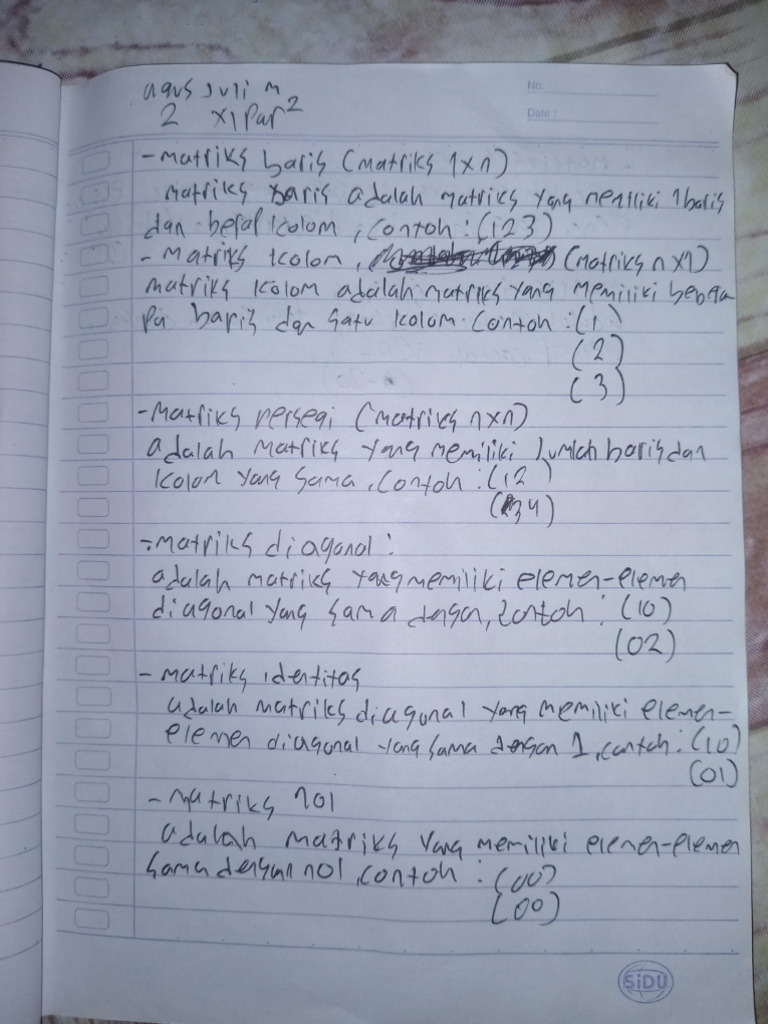 agus Juli M
No.
2 XI Par 2
Date :
- Matriks baris (Matriks 1 x n)
Matriks baris adalah Matriks yang memiliki 1 baris
dan kolom, contoh : (1 2 3)
- Matriks kolom, (Matriks n x 1)
Matriks kolom adalah matriks yang memiliki bebera
pa baris dan satu kolom. Contoh : (1)
(2)
(3)
- Matriks persegi (Matriks n x n)
adalah Matriks yang memiliki Jumlah baris dan
kolom yang sama, contoh : (1 2)
(3 4)
- Matriks diagonal :
adalah matriks yang memiliki elemen-elemen
diagonal yang sama dengan, contoh : (1 0)
(0 2)
- Matriks identitas
adalah matriks diagonal yang memiliki elemen-
elemen diagonal yang sama dengan 1, contoh : (1 0)
(0 1)
- Matriks nol
adalah matriks yang memiliki elemen-elemen
sama dengan nol, contoh : (0 0)
(0 0)
SiDU